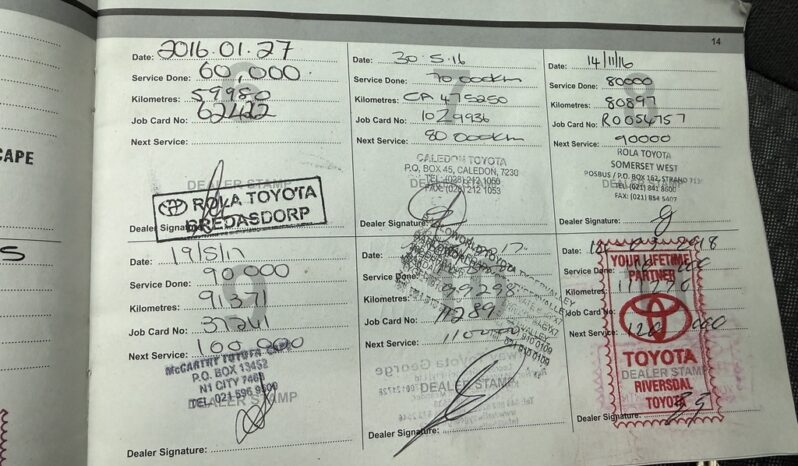 14
CAPE
Date: 2016.01.27
Service Done: 60,000
Kilometres: 59980
Job Card No: 62422
Next Service:
DEALER STAMP
ROLA TOYOTA
BREDASDORP
Dealer Signature:
Date: 30.5.16
Service Done: 70 000km
Kilometres: CA 475250
Job Card No: 1029936
Next Service: 80 000km
CALEDON TOYOTA
P.O. BOX 45, CALEDON, 7230
TEL: (028) 212 1050
FAX: (028) 212 1053
Dealer Signature:
Date: 14/11/16
Service Done: 80000
Kilometres: 80897
Job Card No: R0054757
Next Service: 90000
ROLA TOYOTA
SOMERSET WEST
POSBUS / P.O. BOX 162, STRAND
TEL: (021) 841 8600
FAX: (021) 854 5407
Dealer Signature:
Date: 19/5/17
Service Done: 90 000
Kilometres: 91371
Job Card No: 37261
Next Service: 100 000
McCARTHY TOYOTA
P.O. BOX 13452
N1 CITY 7463
DEALER STAMP
Dealer Signature:
Service Done:
Kilometres: 99298
Job Card No: 11289
Next Service: 110000
021 910 0109
DEALER STAMP
Dealer Signature:
2018
YOUR LIFETIME
PARTNER
Service Done:
Kilometres: 111270
Job Card No:
Next Service: 120 000
TOYOTA
DEALER STAMP
RIVERSDAL
TOYOTA
Dealer Signature: